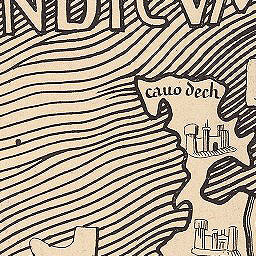 NDICVM
cauo dech